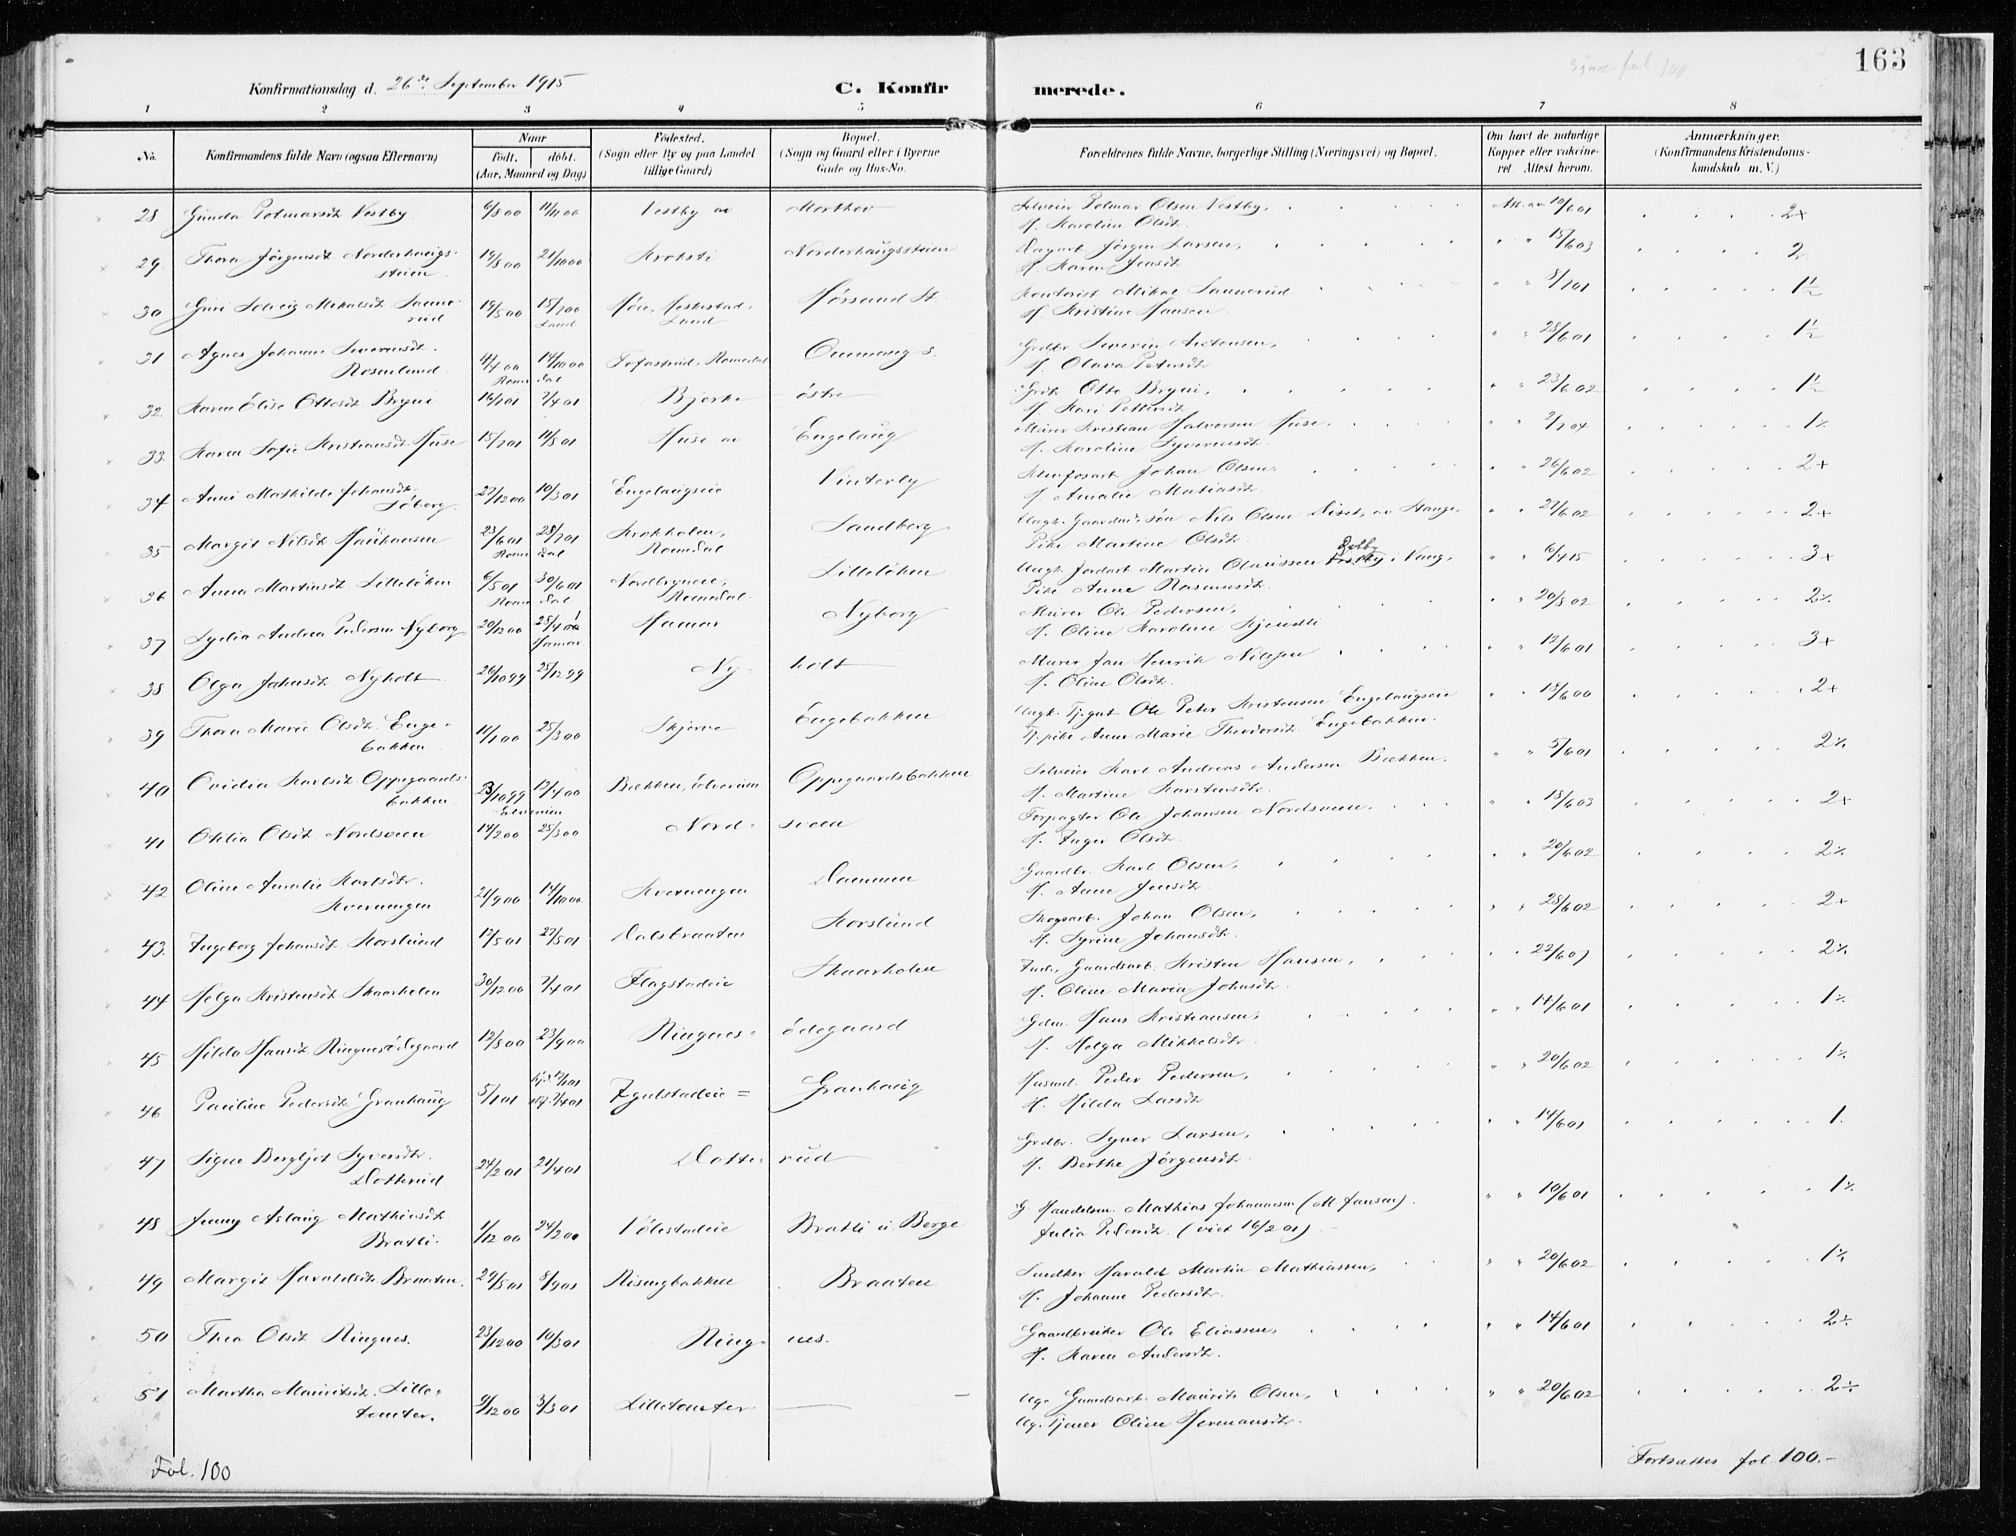 163
Konfirmationsdag d. 26de September 1915
C. Konfirmerede.
1 2 3 4 5 6 7 8
No.
Konfirmandens fulde Navn (ogsaa Efternavn)
Naar
født. døbt.
(Aar, Maaned og Dag)
Fødested.
(Sogn eller By og paa Landet tillige Gaard)
Bopæl.
(Sogn og Gaard eller i Byerne Gade og Hus-No.
Forældrenes fulde Navne, borgerlige Stilling (Næringsvei) og Bopæl.
Om havt de naturlige Kopper eller vakcineret. Attest herom.
Anmærkninger.
(Konfirmandens Kristendomskundskab m. V.)
28 Gunda Polmarsdt. Vestby 6/8 00 11/11 00 Vestby av Morthov
Selveier Polmar Olsen Vestby, H. Karoline Olsdt. Att. av 10/6 01 2+
29 Thora Jørgensdt. Norderhaugsstuen 19/8 00 21/10 00 Kroksti Norderhaugsstuen
Dagarb. Jørgen Larsen, H. Karen Jensdt. 15/6 03 2
30 Guri Solveig Mikalsdt. Sannerud 19/5 00 15/7 00 Lund
Kontorist Mikal Sannerud H. Kristine Hansen 8/7 01 1½
31 Agnes Johanne Severinsdt. Rosenlund 4/7 00 14/10 00 Romedal Tofastrud, Romedal Ommang s.
Grdbr. Severin Arntensen, H. Olava Petersdt. 25/6 01 1½
32 Karen Elise Ottosdt. Bryni 16/1 01 7/4 01 Bjørke østre
Otto Bryni, H. Kari Pettersdt. 23/6 02 1½
33 Karen Sofie Kristiansdt. Huse 15/7 01 11/8 01 Huse av Engelaug
Murer Kristian Halvorsen Huse, H. Karoline Syversdt. 2/7 04 1%
34 Anni Mathilde Johansdt. Søberg 27/12 00 10/3 01 Engelaugseie Vinterby
Johan Olsen, H. Amalie Matiasdt. 26/6 02 2+
35 Margit Nilsdt. Haukaasen 23/6 01 28/7 01 Romedal Krokholen, Romedal Sandberg
Ungk. Gaardm. søn Nils Olsen Diset, av Stange, Pike Martine Olsdt. 27/6 02 2+
36 Anna Martinsdt. Lilleløken 6/5 01 30/6 01 Romedal Nordbyneie, Romedal Lilleløken
Ungk. Jordarb. Martin Olaussen Vestby i Vang, Pike Anne Rasmusdt. 6/4 15 3+
37 Lydia Andrea Pedersen Nyborg 20/12 00 28/4 01 Hamar Hamar Nyborg
Murer Ole Pedersen, H. Oline Karoline 20/8 02 2%
38 Olga Jansdt. Nyholt 26/10 99 25/12 99 Nyholt
Murer Jan Henrik Nilsen H. Oline Olsdt. 12/6 01 3+
39 Thora Marie Olsdt. Engebakken 11/1 00 25/3 00 Skjerve Engebakken
Ungk. Tj.gut Ole Peter Kristensen Engelaugseie Tj.pike Anne Marie Theodorsdt. Engebakken. 18/6 00 2+
40 Ovidia Karlsdt. Oppegaardsbakken 23/10 99 12/4 00 Elverum Bækken, Elverum Oppegaardsbakken
Selveier Karl Andreas Andersen Bækken, H. Martine Karstensdt. 5/6 01 2%
41 Otilia Olsdt. Nordsveen 14/2 00 25/3 00 Nordsveen
Forpagter Ole Johansen Nordsveen, H. Inger Olsdt. 18/6 03 2+
42 Oline Amalie Karlsdt. Kvernengen 21/9 00 14/10 00 Kvernengen Dammen
Gaardbr. Karl Olsen, H. Anne Jensdt. 20/6 02 2%
43. Ingeborg Johansdt. Korslund 12/5 01 27/5 01 Dalsbraaten Korslund
Skogsarb. Johan Olsen, H. Syrine Johansdt. 28/6 02 2+
44 Helga Kristensdt. Skaarholen 30/12 00 7/4 01 Flagstadeie Skaarholen
Ind., Gaardsarb. Kristen Hansen, H. Oline Maria Johnsdt. 22/6 07 2%
45 Hilda Hansdt. Ringnesødegaard 12/8 00 23/9 00 Ringnesødegaard
Gdm. Hans Kristiansen, H. Helga Mikkelsdt. 14/6 01 1%
46 Pauline Pedersdt. Granhaug 5/1 01 Hjd. 17/1 01 7/4 01 Igulstadeie = Granhaug
Husmd. Peder Pedersen, H. Hilda Larsdt. 20/6 02 1%
47 Signe Bergljot Syversdt. Dotterud 24/2 01 21/4 01 Dotterud
Grdbr. Syver Larsen, H. Berthe Jørgensdt. 14/6 01 1.
48 Jenny Aslaug Mathiasdt. Bratli. 1/12 00 24/2 00 Vølestadeie Bratli u. Berge
G. Handelsm. Mathias Johannesen (M. Jansen). Julia Pedersdt. (viet 16/2 01) 10/6 01 1%
49 Margit Haraldsdt. Braaten. 29/5 01 8/9 01 Risingbakken Braaten
Snedker Harald Martin Mathiassen, H. Johanne Pedersdt. 20/6 02 1%
50 Thea Olsdt. Ringnes. 23/12 00 10/3 01 Ringnes.
Gaardbruker Ole Eliassen, H. Karen Andersdt. 14/6 01 2%
51 Martha Mauritsdt. Lilletomter. 9/12 00 3/3 01 Lilletomter —
Ug. Gaardsarb. Maurits Olsen, Ug. Tjener Oline Hermansdt. 20/6 02 2%
Fol. 100
Fortsættes fol 100.-